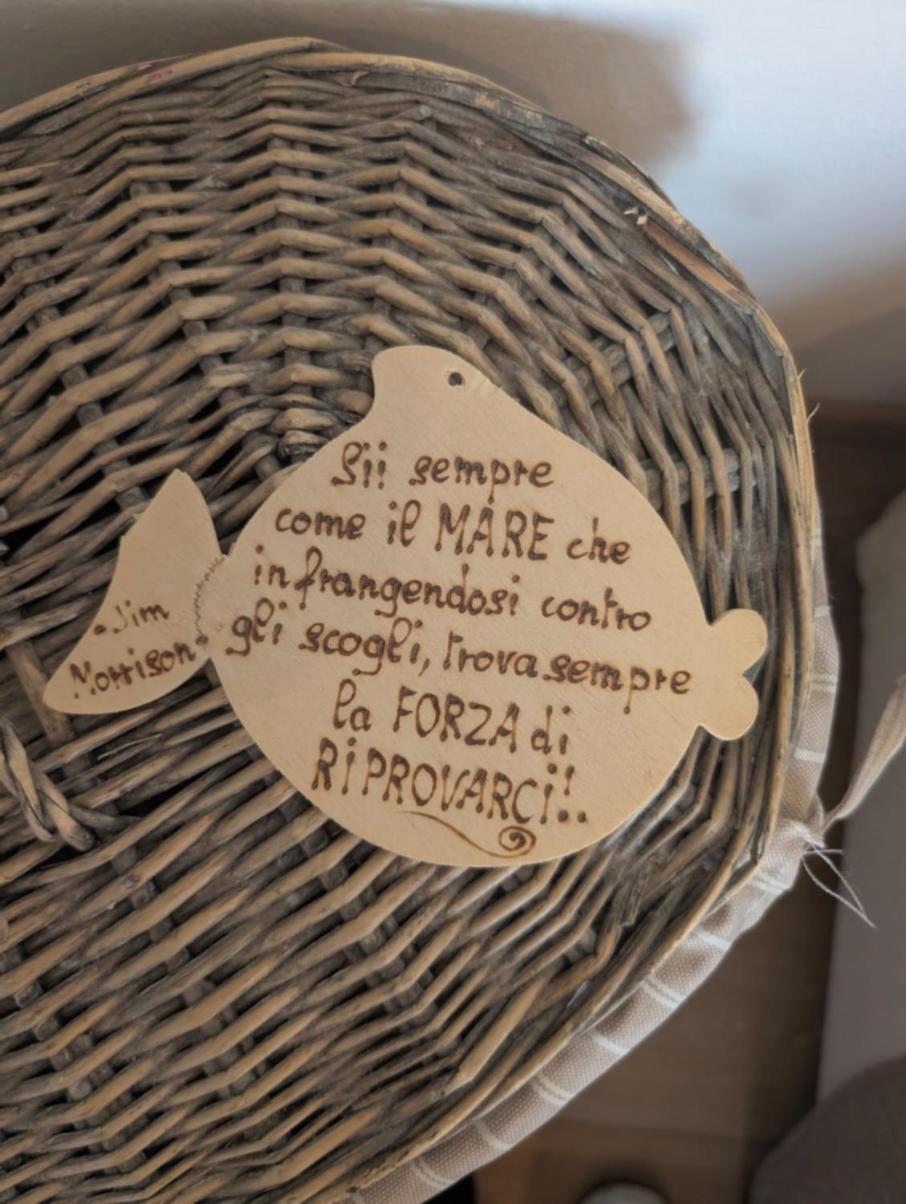 Sii sempre
come il MARE che
infrangendosi contro
gli scogli, trova sempre
la FORZA di
RiPROVARCi!!.
- Jim
Morrison -